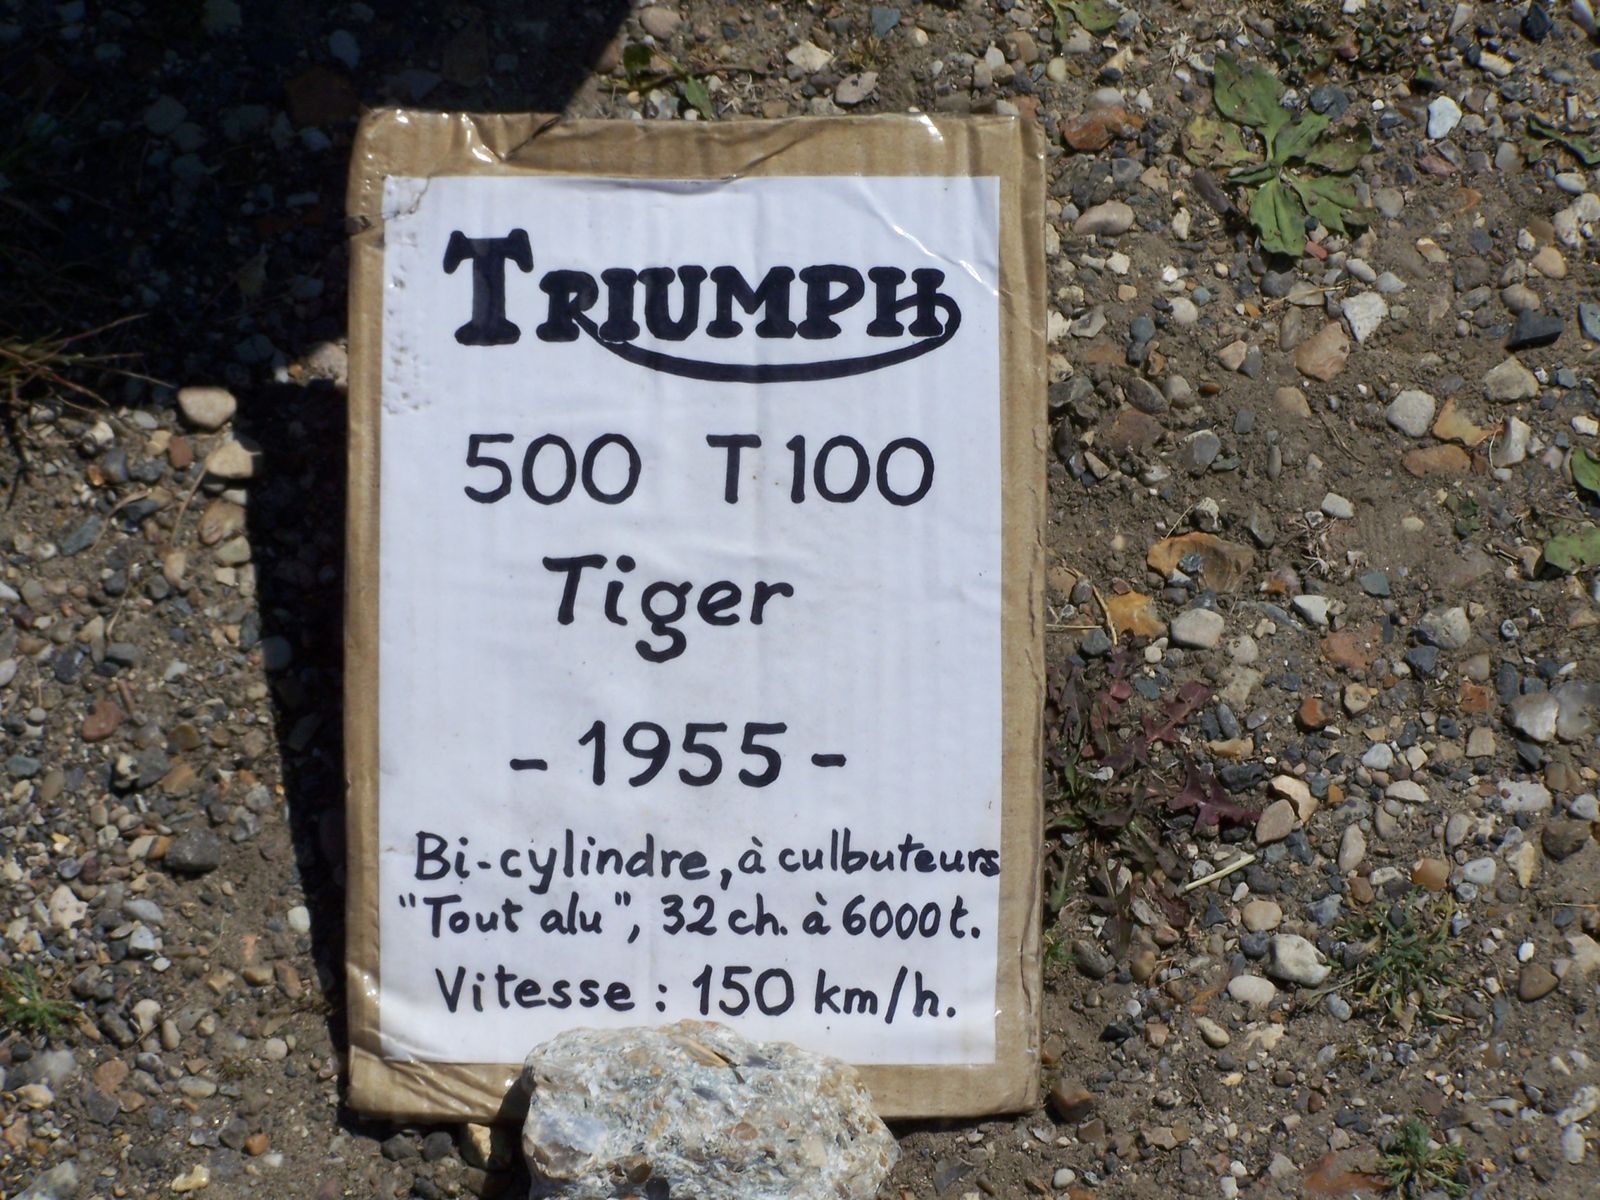 TRIUMPH
500 T100
Tiger
- 1955 -
Bi-cylindre, à culbuteurs
"Tout alu", 32 ch. à 6000 t.
Vitesse : 150 km/h.